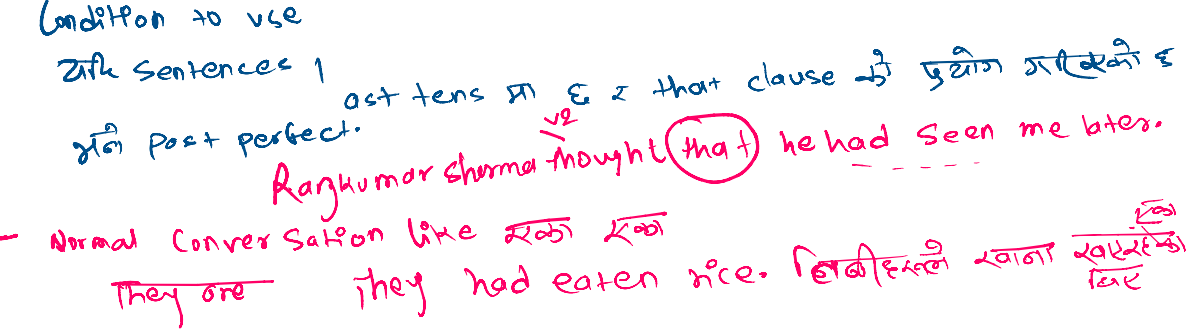 Condition to use
यदि Sentences
ast tens मा छ र that clause को प्रयोग गरिएको छ
भने Past perfect.
v2
Rajkumar Sharma thought that he had seen me later.
- Normal Conversation like एका एका
They are They had eaten rice. तिनीहरूले खाना
थिए